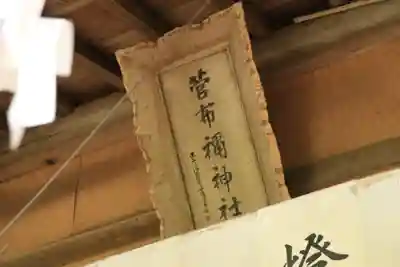 菅布禰神社
燈